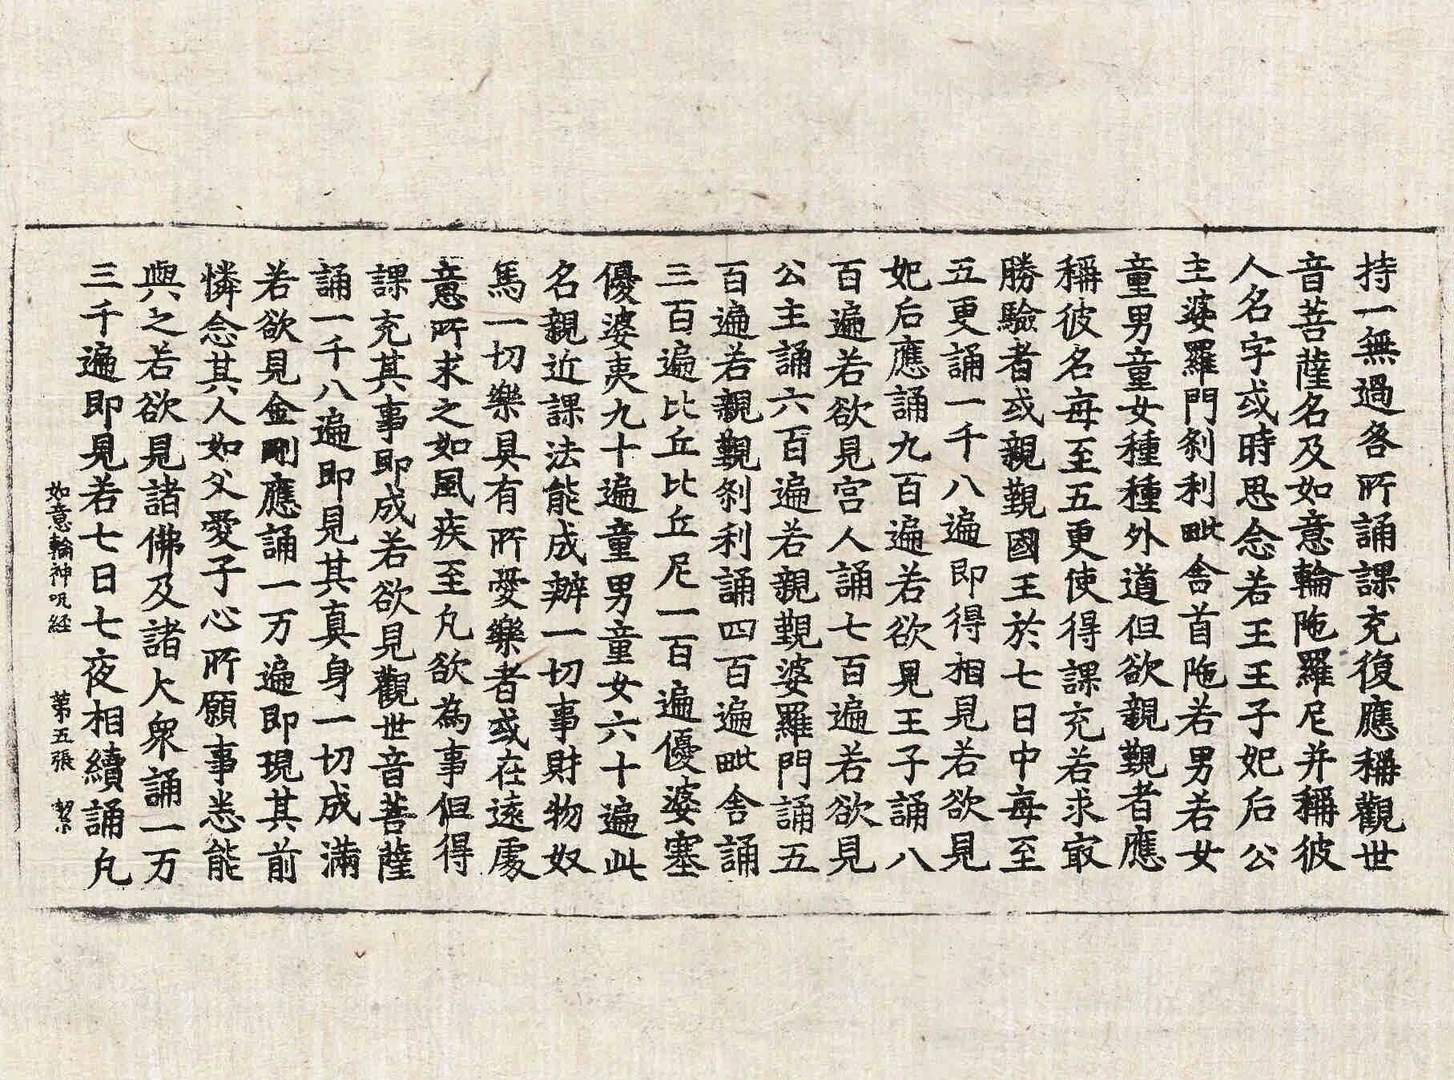 持一無過各所誦課充復應稱觀世
音菩薩名及如意輪陁羅尼并稱彼
人名字或時思念若王王子妃后公
主婆羅門刹利毗舍首陁若男若女
童男童女種種外道但欲親覲者應
稱彼名每至五更使得課充若求㝡
勝驗者或親覲國王於七日中每至
五更誦一千八遍即得相見若欲見
妃后應誦九百遍若欲見王子誦八
百遍若欲見宮人誦七百遍若欲見
公主誦六百遍若親覲婆羅門誦五
百遍若親覲刹利誦四百遍毗舍誦
三百遍比丘比丘尼一百遍優婆塞
優婆夷九十遍童男童女六十遍此
名親近課法能成辦一切事財物奴
馬一切樂具有所憂樂者或在遠處
意所求之如風疾至凡欲為事但得
課充其事即成若欲見觀世音菩薩
誦一千八遍即見其真身一切成滿
若欲見金剛應誦一万遍即現其前
憐念其人如父愛子心所願事悉能
與之若欲見諸佛及諸大衆誦一万
三千遍即見若七日七夜相續誦凡
如意輪神呪経 第五張 絜